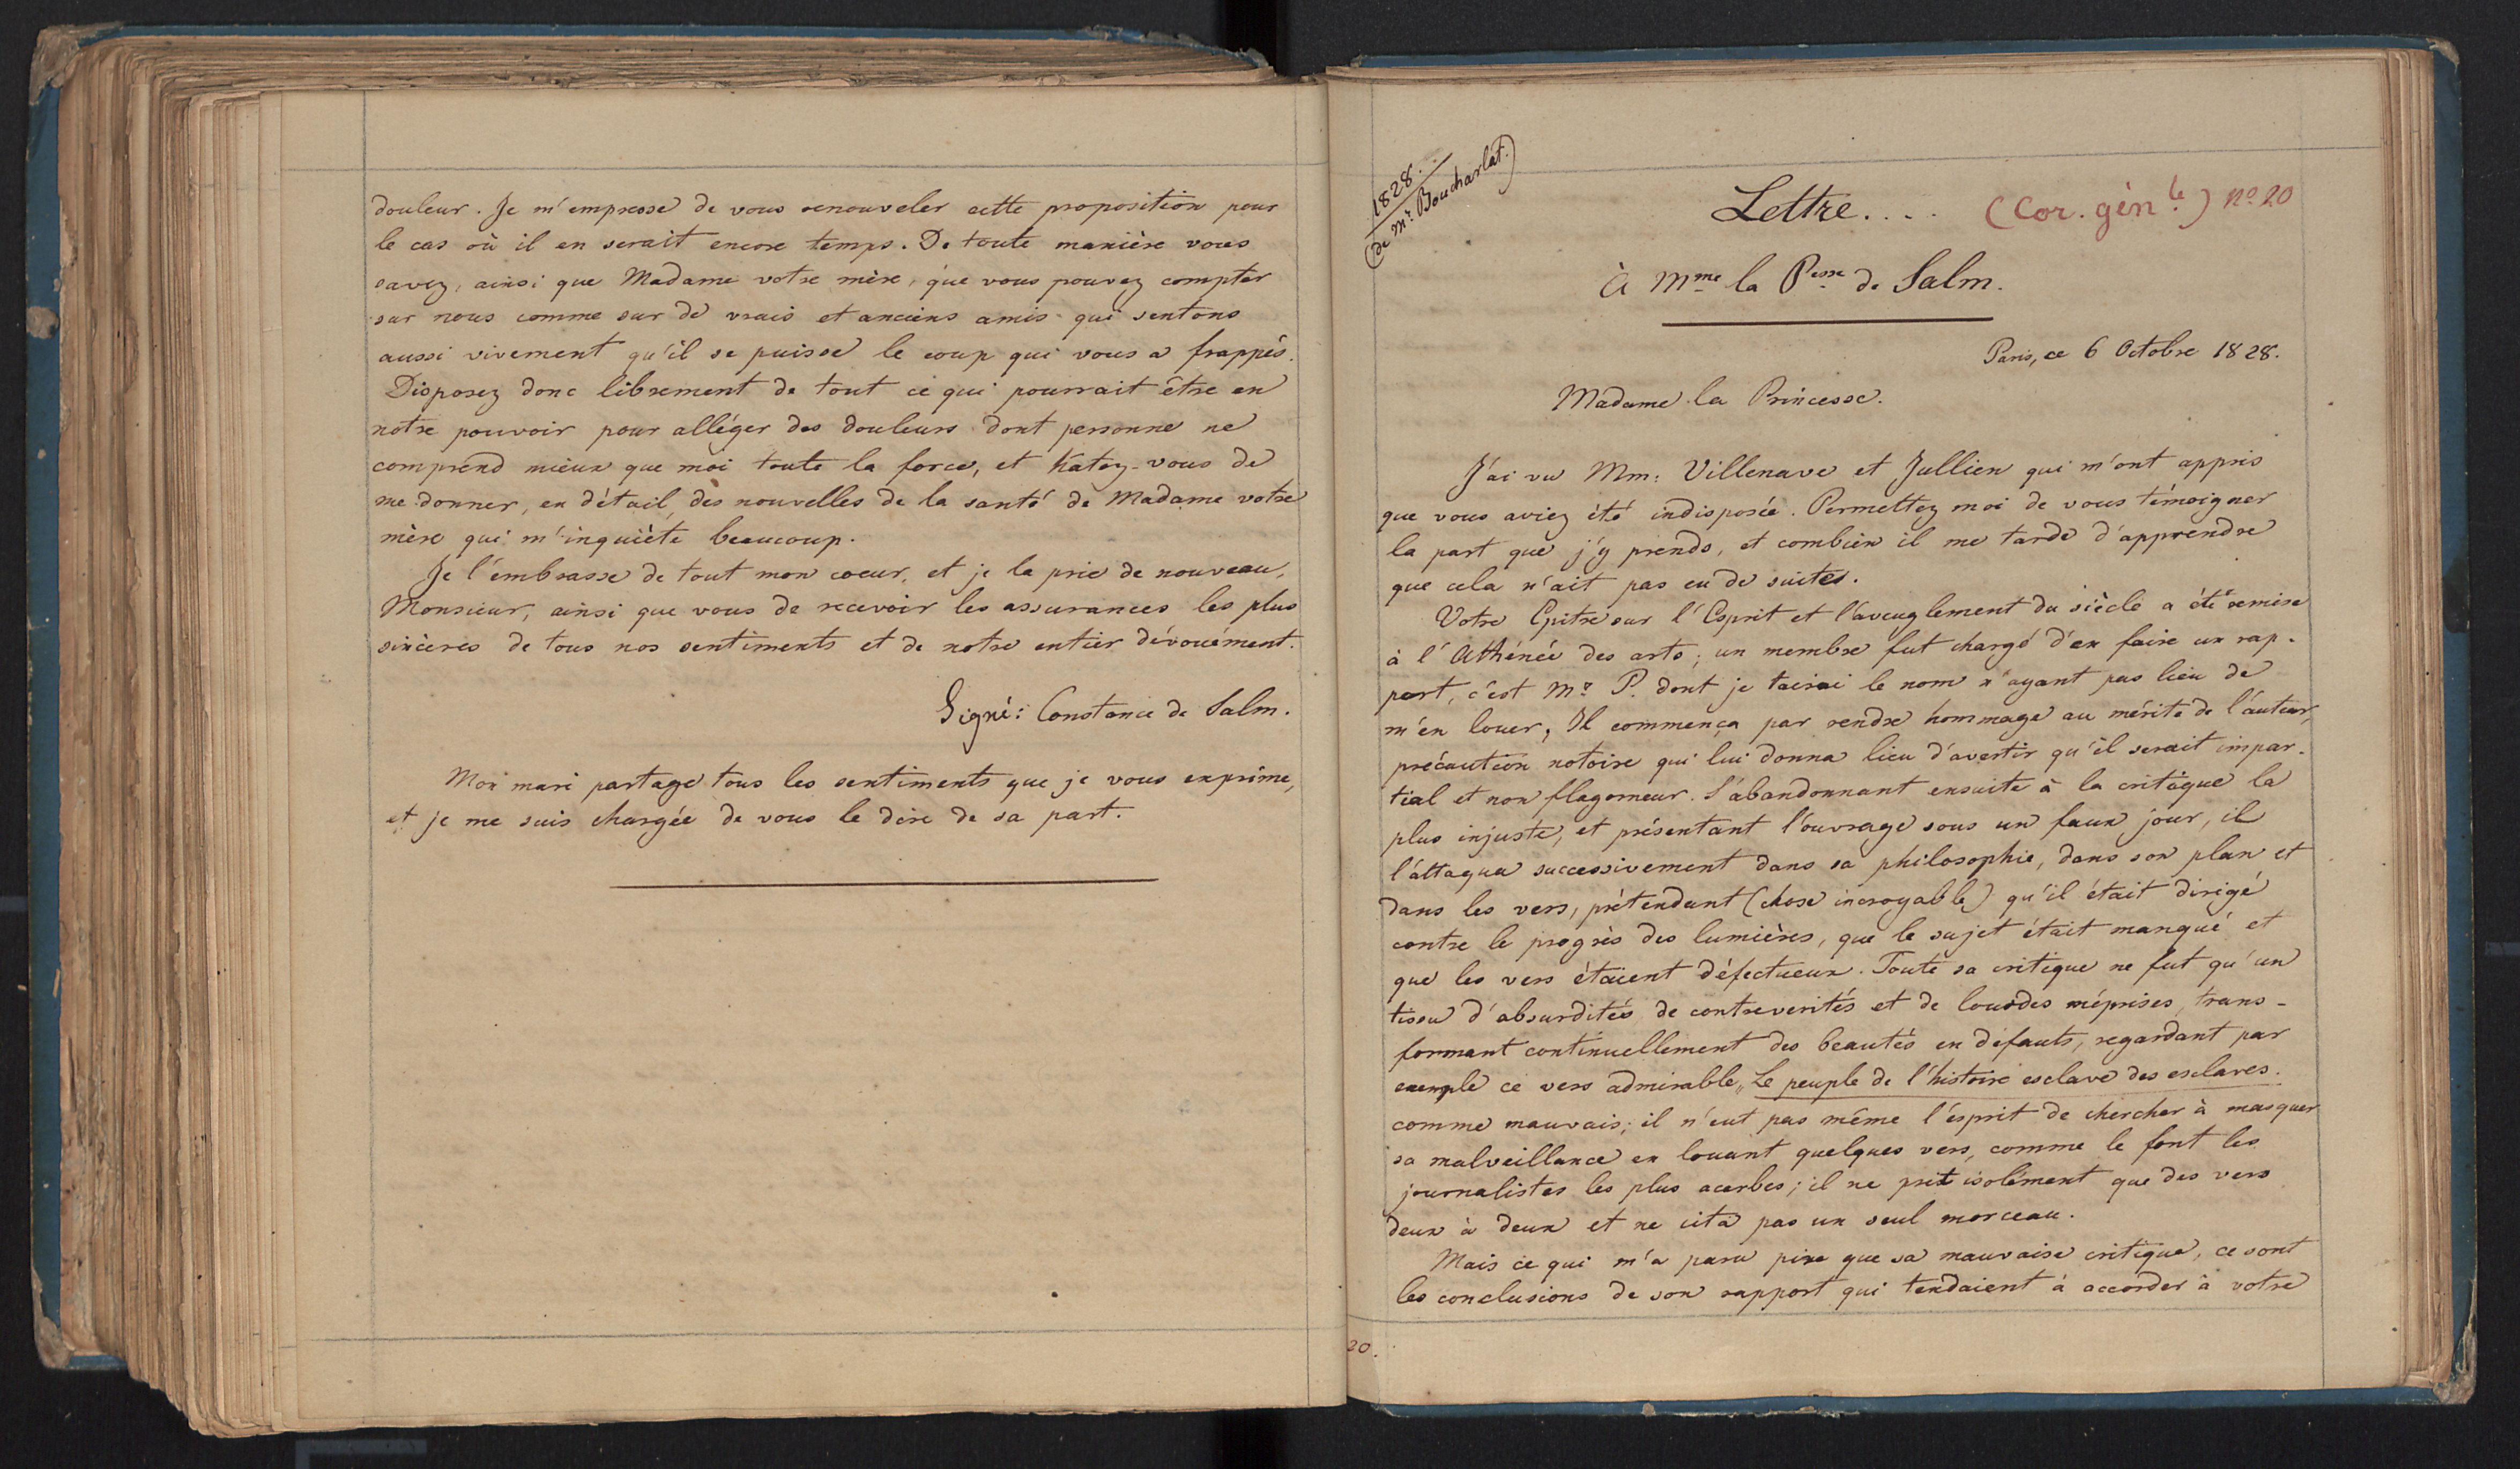 douleur. Je m'empresse de vous renouveler cette proposition pour
le cas où il en serait encore temps. De toute manière vous
savez, ainsi que Madame votre mère, que vous pouvez compter
sur nous comme sur de vrais et anciens amis qui sentons
aussi vivement qu'il se puisse le coup qui vous a frappés.
Disposez donc librement de tout ce qui pourrait être en
notre pouvoir pour alléger des douleurs dont personne ne
comprend mieux que moi toute la force, et hatez-vous de
me donner, en détail, des nouvelles de la santé de Madame votre
mère qui m'inquiète beaucoup.
Je l'embrasse de tout mon coeur, et je la prie de nouveau,
Monsieur, ainsi que vous de recevoir les assurances les plus
sincères de tous nos sentiments et de notre entier dévouément.
Signé: Constance de Salm.
Mon mari partage tous les sentiments que je vous exprime,
et je me suis chargée de vous le dire de sa part.
1828.
(de Mr. Boucharlat.)
Lettre.... (Cor. génle.) No. 20
À Mme la Pesse de Salm.
Paris, ce 6 Octobre 1828.
Madame la Princesse.
J'ai vu Mm: Villenave et Jullien qui m'ont appris
que vous aviez été indisposée. Permettez moi de vous témoigner
la part que j'y prends, et combien il me tarde d'apprendre
que cela n'ait pas eu de suites.
Votre Epitre sur l'Esprit et l'aveuglement du siècle a été remise
à l'Athénée des arts; un membre fut chargé d'en faire un rap-
port, c'est Mr. P. dont je tairai le nom n'ayant pas lieu de
m'en louer; Il commença par rendre hommage au mérite de l'auteur,
précaution notoire qui lui donna lieu d'avertir qu'il serait impar-
tial et non flagorneur. S'abandonnant ensuite à la critique la
plus injuste, et présentant l'ouvrage sous un faux jour, il
l'attaqua successivement dans sa philosophie, dans son plan et
dans les vers, prétendant (chose incroyable) qu'il était dirigé
contre le progrès des lumières, que le sujet était manqué et
que les vers étaient défectueux. Toute sa critique ne fut qu'un
tissu d'absurdités de contreverités et de lourdes méprises, trans-
formant continuellement des beautés en défauts, regardant par
exemple ce vers admirable „Le peuple de l'histoire esclave des esclaves.
comme mauvais; il n'eut pas même l'esprit de chercher à masquer
sa malveillance en louant quelques vers, comme le font les
journalistes les plus acerbes; il ne prit isolément que des vers
deux à deux et ne cita pas un seul morceau.
Mais ce qui m'a paru pire que sa mauvaise critique, ce sont
les conclusions de son rapport qui tendaient à accorder à votre
20.